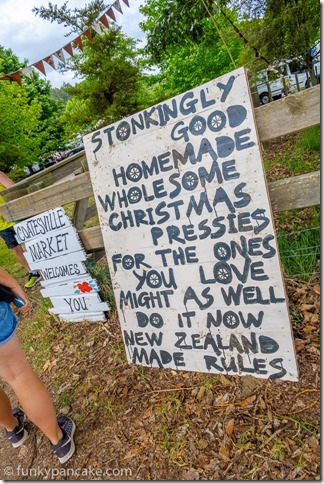 STONKINGLY
GOOD
HOMEMADE
WHOLESOME
CHRISTMAS
PRESSIES
FOR THE ONES
YOU LOVE
MIGHT AS WELL
DO IT NOW
NEW ZEALAND
MADE RULES.
COATESVILLE
MARKET
WELCOMES
YOU
© funkypancake.com